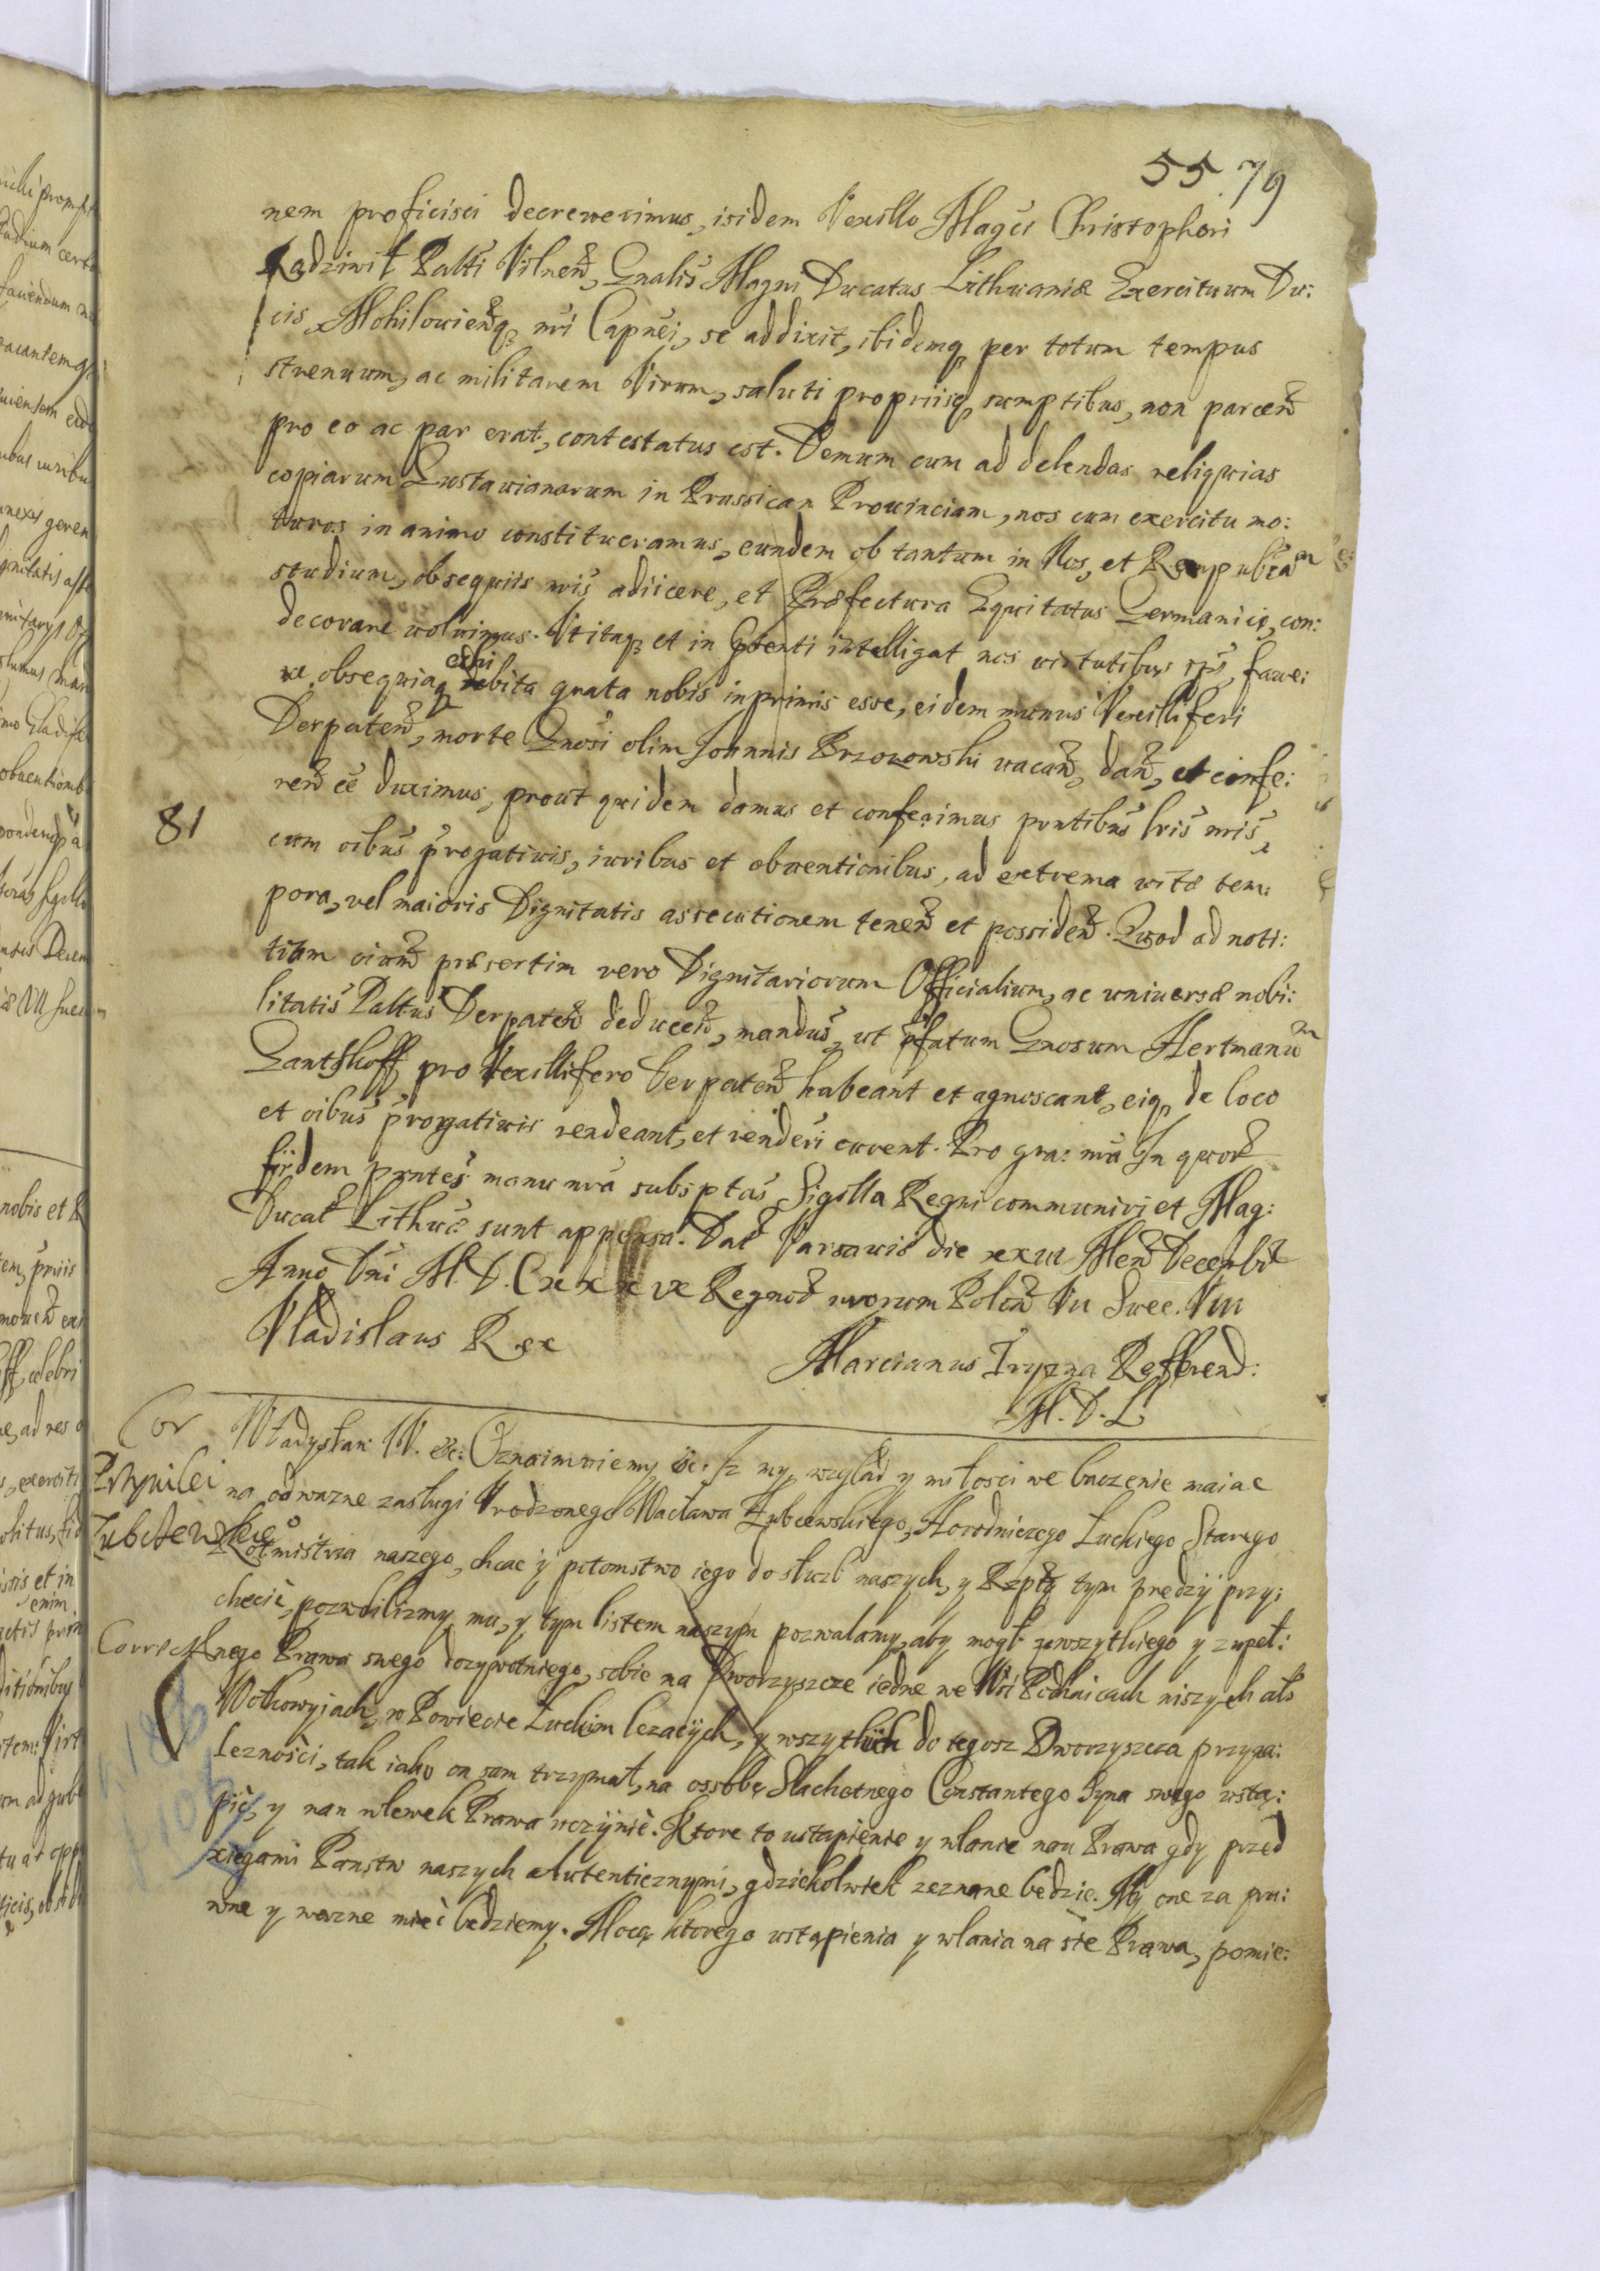 55. 79
nem proficisci decreverimus, isidem Vexillo Magci Christophori
Radziwił Palti Vilneñ, Gnalis Magni Ducatus Lithuaniæ Exercituum Du:
cis, Mohilowieñq nri Capnei, se addixit, ibidemq per totum tempus
strenuum, ac militarem Virum, saluti propriisq sumptibus, non parceñ
pro eo ac par erat, contestatus est. Demum cum ad delendas reliquias
copiarum Gustavianarum in Prussicam Provinciam, nos cum exercitu mo:
turos in animo constitueramus, eundem ob tantum in Nos, et Rempublcam
studium, obsequiis nris adiicere, et Præfectura Equitatus Germanici, con:
decorare voluimus. Ut itaq et in pnti intelligat nos virtutibus ips, fave:
re, obsequiaq debita grata nobis inprimis esse, eidem munus Vexilliferi
Derpateñ, morte Gnosi olim Joannis Brzozowski vacañ, dañ, et confe:
reñ eē duximus, prout quidem damus et conferimus pntibus lris nris,
81
cum oibus progativis, iuribus et obventionibus, ad extrema vitæ tem:
pora, vel maioris Dignitatis assecutionem teneñ et possideñ. Quod ad noti:
tiam oium præsertim vero Dignitariorum Officialium, ac universæ nobi:
litatis Paltus Derpateñ deduceñ, mandus, ut pfatum Gnosum Hertmanum
Gantshoff pro Vexillifero Derpateñ habeant et agnoscant, eiq de loco
et oibus progativis rendeant, et renderi curent. Pro gra: nra In quor
fidem pntes manu nra subsptas Sigilla Regni communiri et Mag:
Ducat Lithuæ sunt appensa. Dat Varsaviæ die xxiii Meñ Decembr
Anno Dni M. D. C xxx ix Regnor nrorum Poloñ Vii Suec. Viii
Vladislaus Rex
Marcianus Tryzna Refferend:
M. D. L
Cor Władysław IV. &c: Oznaimuiemy &c. Iz my, wzgląd y miłosciwe baczenie maiac
Przywilei na odwazne zasługi Urodzonego Wacława Zubcewskiego, Horodniczego Luckiego Starego
Zubcewskiego Rotmistrza naszego, chcac y potomstwo iego do służb naszych, y Rzptey tym prędzÿ przy:
checic, pozwolilizmy mu, y tym listem naszym pozwalamy, aby mogł zewszytkiego y zupeł:
Correct nego Prawa swego dozywotniego, sobie na Dworzyszcze iedne we Wsi Podhaicach niszych als
Wołkowyiach, w Powiecie Luckim lezacÿch, y wszytkich do tegosz Dworzyszcza przyna:
leznosci, tak iako on sam trzymał, na ossobe Slachetnego Constantego Syna swego ustą:
pic, y nan wlewek Prawa uczÿnic. Ktore to ustapienie y wlanie nan Prawa gdy przed
xiegami Panstw naszych autenticznymi, gdziekolwiek zeznane będzie. My one za pra:
wne y wazne miec będziemy. Mocą ktorego ustąpienia y wlania na sie Prawa, pomie: